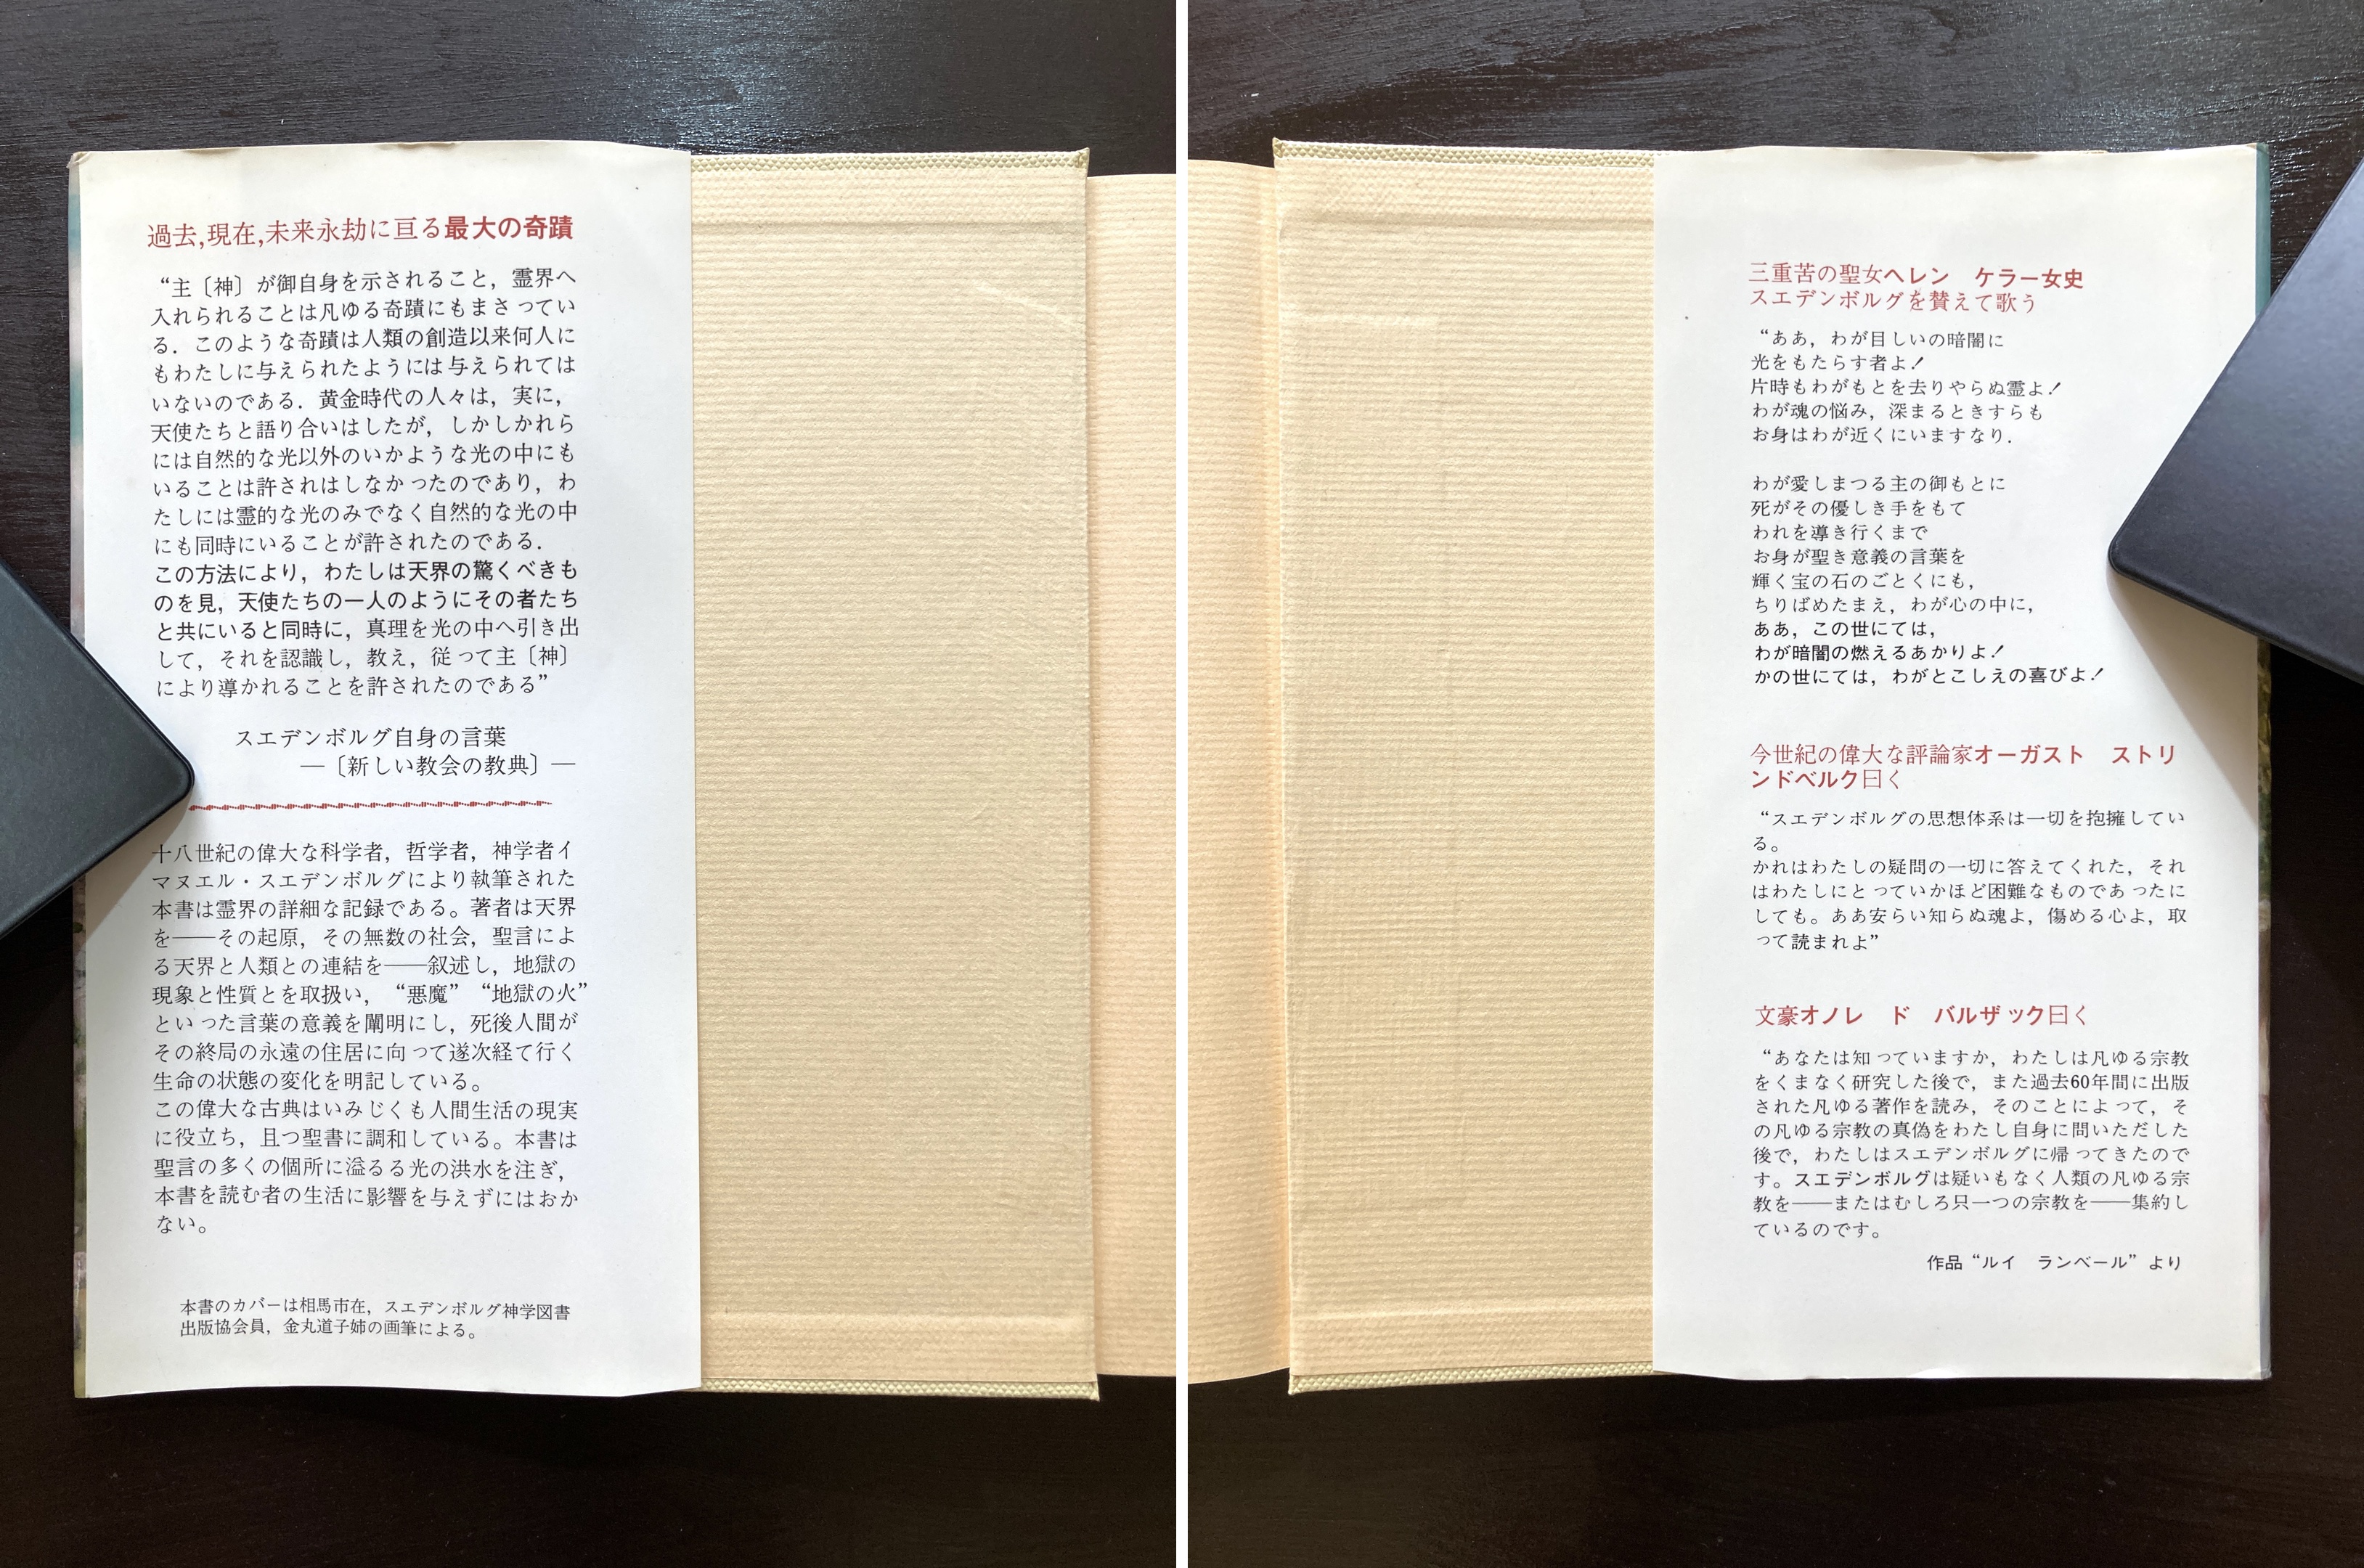 過去,現在,未来永劫に亘る最大の奇蹟
“主〔神〕が御自身を示されること，霊界へ
入れられることは凡ゆる奇蹟にもまさってい
る．このような奇蹟は人類の創造以来何人に
もわたしに与えられたようには与えられては
いないのである．黄金時代の人々は，実に，
天使たちと語り合いはしたが，しかしかれら
には自然的な光以外のいかような光の中にも
いることは許されはしなかったのであり，わ
たしには霊的な光のみでなく自然的な光の中
にも同時にいることが許されたのである．
この方法により，わたしは天界の驚くべきも
のを見，天使たちの一人のようにその者たち
と共にいると同時に，真理を光の中へ引き出
して，それを認識し，教え，従って主〔神〕
により導かれることを許されたのである”
スエデンボルグ自身の言葉
―〔新しい教会の教典〕―
十八世紀の偉大な科学者，哲学者，神学者イ
マヌエル・スエデンボルグにより執筆された
本書は霊界の詳細な記録である。著者は天界
を――その起原，その無数の社会，聖言によ
る天界と人類との連結を――叙述し，地獄の
現象と性質とを取扱い，“悪魔”“地獄の火”
といった言葉の意義を闡明にし，死後人間が
その終局の永遠の住居に向って遂次経て行く
生命の状態の変化を明記している。
この偉大な古典はいみじくも人間生活の現実
に役立ち，且つ聖書に調和している。本書は
聖言の多くの個所に溢るる光の洪水を注ぎ，
本書を読む者の生活に影響を与えずにはおか
ない。
本書のカバーは相馬市在，スエデンボルグ神学図書
出版協会員，金丸道子姉の画筆による。
三重苦の聖女ヘレン　ケラー女史
スエデンボルグを賛えて歌う
“ああ，わが目しいの暗闇に
光をもたらす者よ！
片時もわがもとを去りやらぬ霊よ！
わが魂の悩み，深まるときすらも
お身はわが近くにいますなり．
わが愛しまつる主の御もとに
死がその優しき手をもて
われを導き行くまで
お身が聖き意義の言葉を
輝く宝の石のごとくにも，
ちりばめたまえ，わが心の中に，
ああ，この世にては，
わが暗闇の燃えるあかりよ！
かの世にては，わがとこしえの喜びよ！
今世紀の偉大な評論家オーガスト　ストリ
ンドベルク曰く
“スエデンボルグの思想体系は一切を抱擁してい
る。
かれはわたしの疑問の一切に答えてくれた，それ
はわたしにとっていかほど困難なものであったに
しても。ああ安らい知らぬ魂よ，傷める心よ，取
って読まれよ”
文豪オノレ　ド　バルザック曰く
“あなたは知っていますか，わたしは凡ゆる宗教
をくまなく研究した後で，また過去60年間に出版
された凡ゆる著作を読み，そのことによって，そ
の凡ゆる宗教の真偽をわたし自身に問いただした
後で，わたしはスエデンボルグに帰ってきたので
す。スエデンボルグは疑いもなく人類の凡ゆる宗
教を――またはむしろ只一つの宗教を――集約し
ているのです。
作品“ルイ　ランベール”より